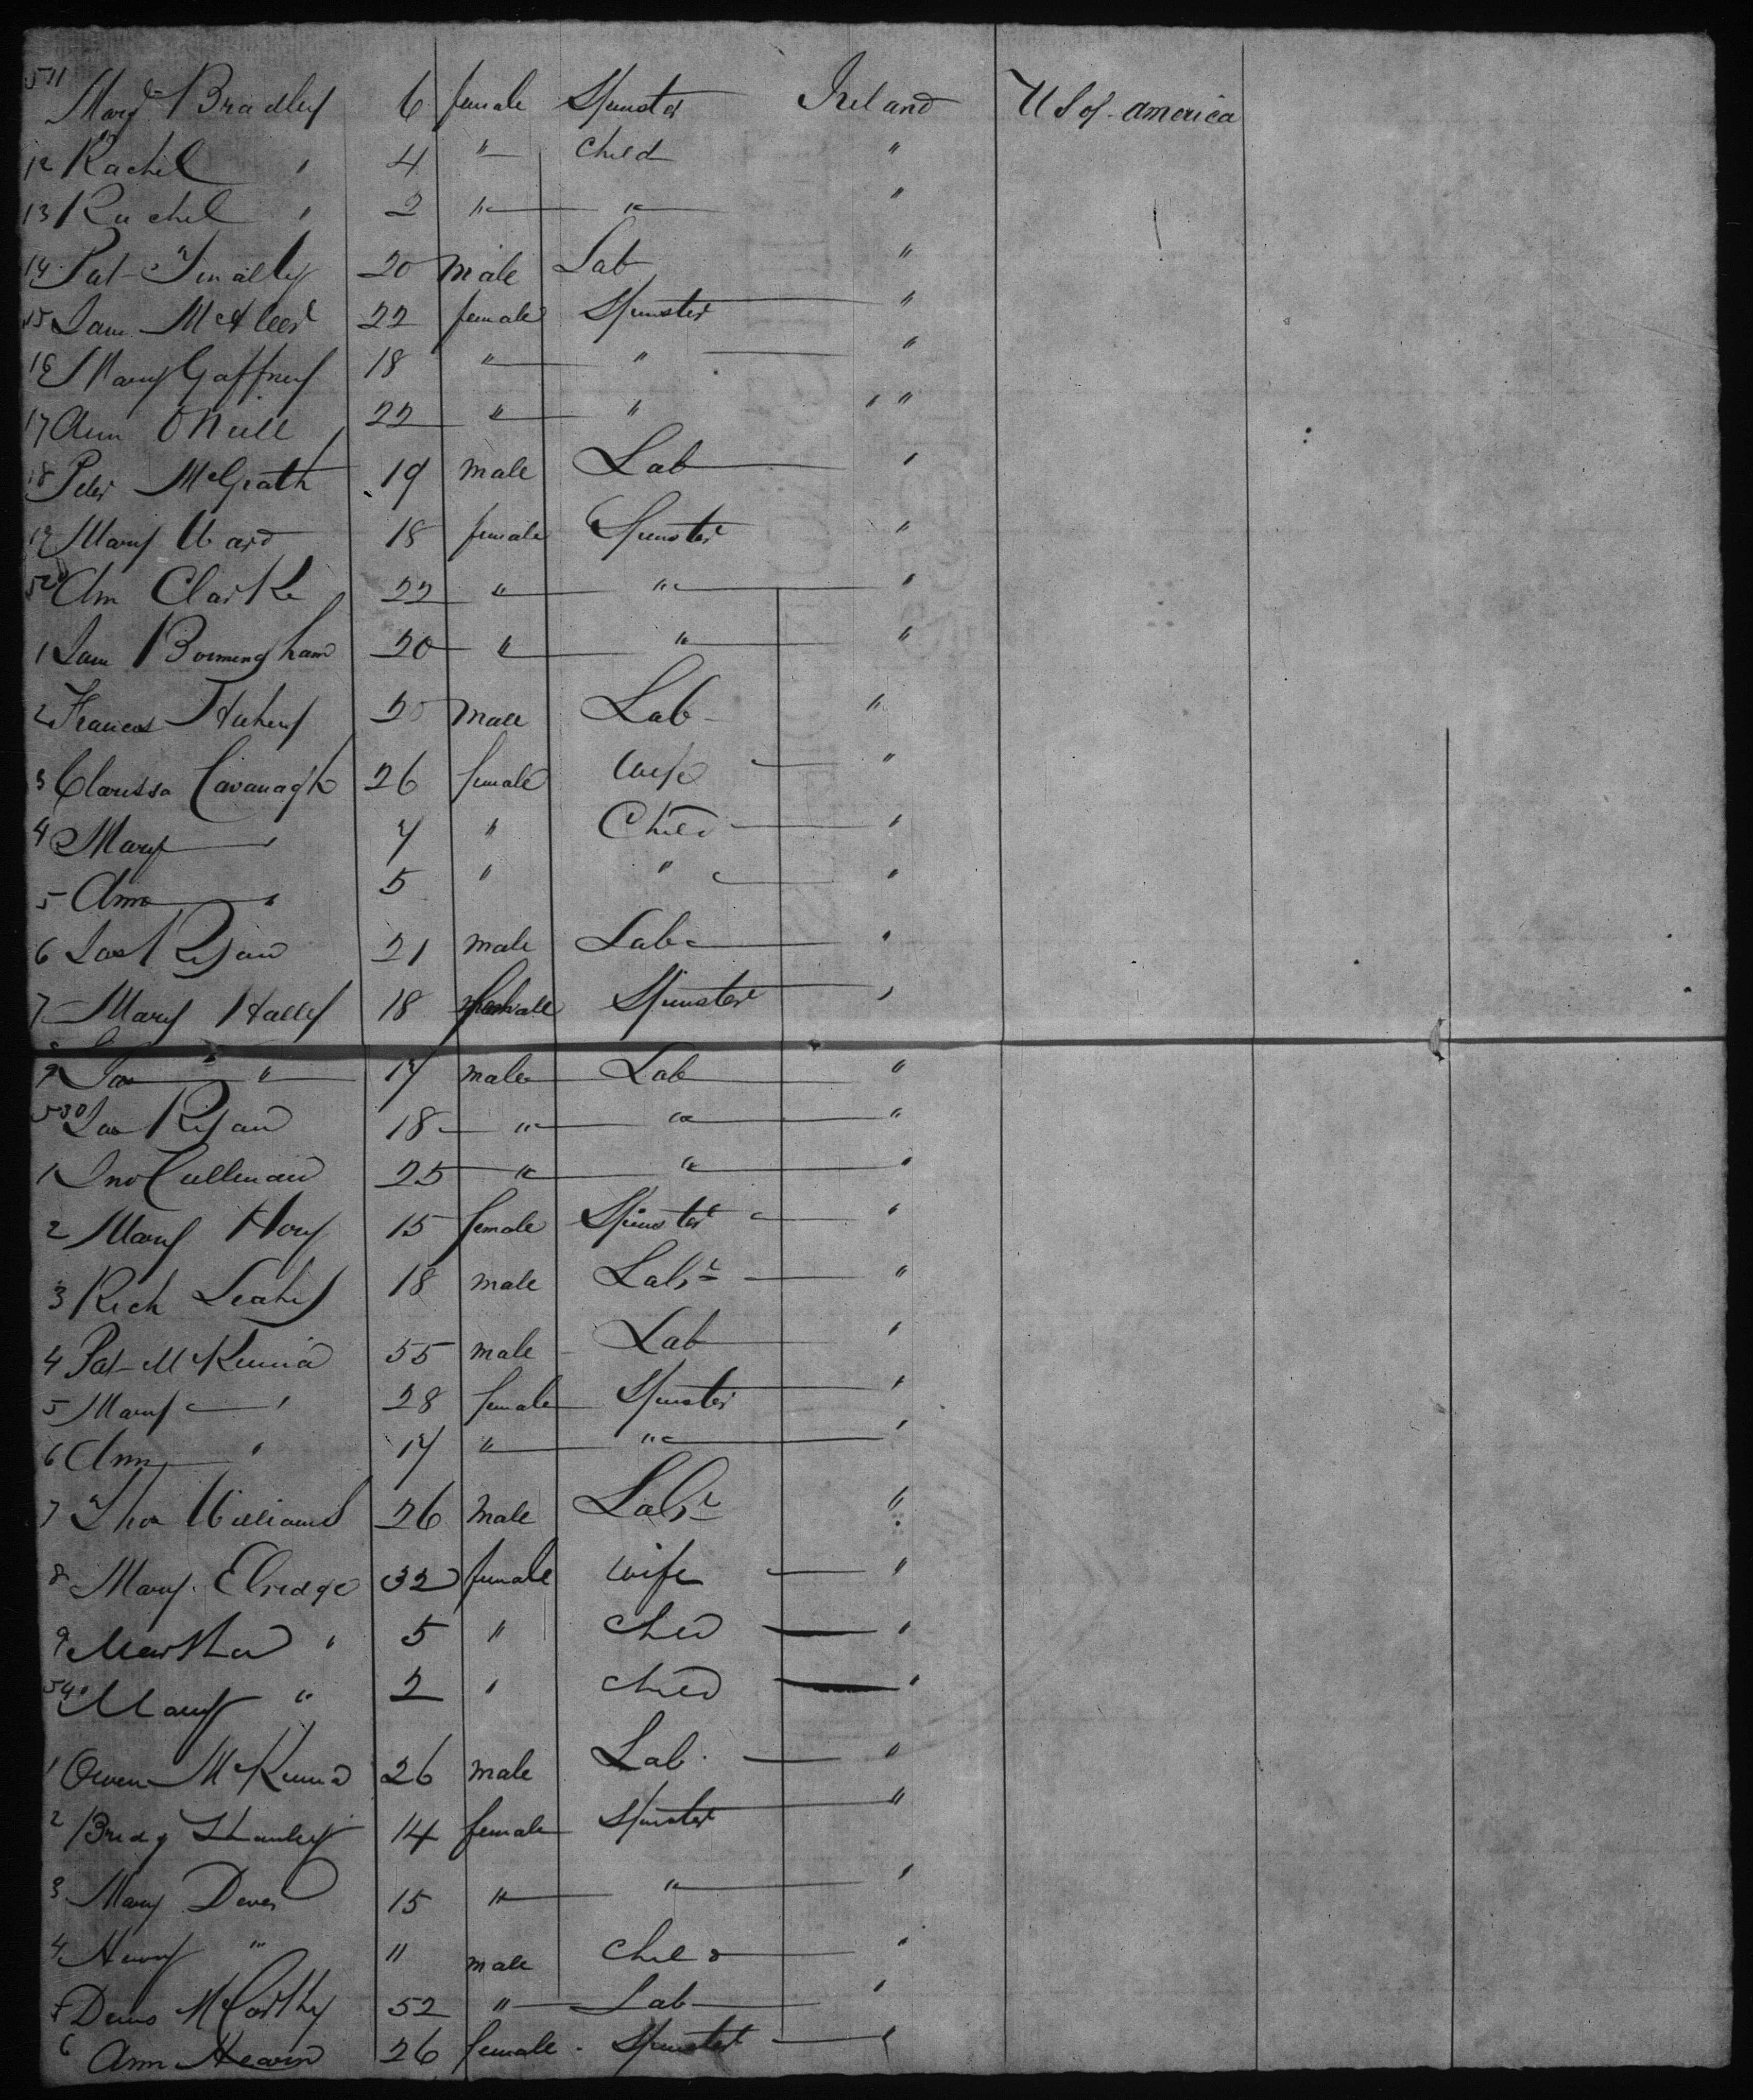 511 Marg Bradley 6 female Spinster Ireland U S of America
12 Rachel " 4 " Child "
13 Rachel " 2 " " "
14 Pat 20 male Lab "
15 Jane McAleer 22 female Spinster "
16 Mary Gaffney 18 " " "
17 Ann O Neill 22 " " "
18 Peter McGrath 19 male Lab "
19 Mary Ward 18 female Spinster "
520 Ann Clarke 22 " " "
1 Jane Bormingham 20 " " "
2 Frances 20 male Lab "
3 Clarissa Cavanagh 26 female Wife "
4 Mary " 7 " Child "
5 Ann " 5 " " "
6 Jas Ryan 21 male Lab "
7 Mary Halley 18 female Spinster "
9 Jas " 17 male Lab "
530 Jas Ryan 18 " " "
1 Jno Cullinan 25 " " "
2 Mary Hoey 15 female Spinster "
3 Rich Leahy 18 male Labr "
4 Pat McKenna 55 male Lab "
5 Mary " 28 female Spinster "
6 Ann " 17 " " "
7 Thos Williams 26 male Labr "
8 Mary Elredge 32 female Wife "
9 Martha " 5 " Child "
540 Mary " 2 " Child "
1 Owen McKenna 26 male Lab "
2 Bridg Shanley 14 female Spinster "
3 Mary 15 " " "
4 Henry " 11 male Child "
5 Denis McCarthy 52 " Lab "
6 Ann Hearn 26 female Spinster "